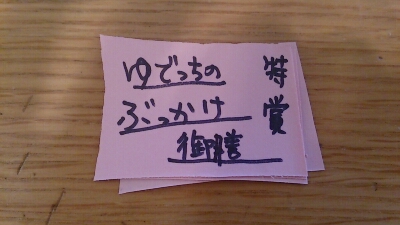 特賞
ゆでっちの
ぶっかけ
御膳